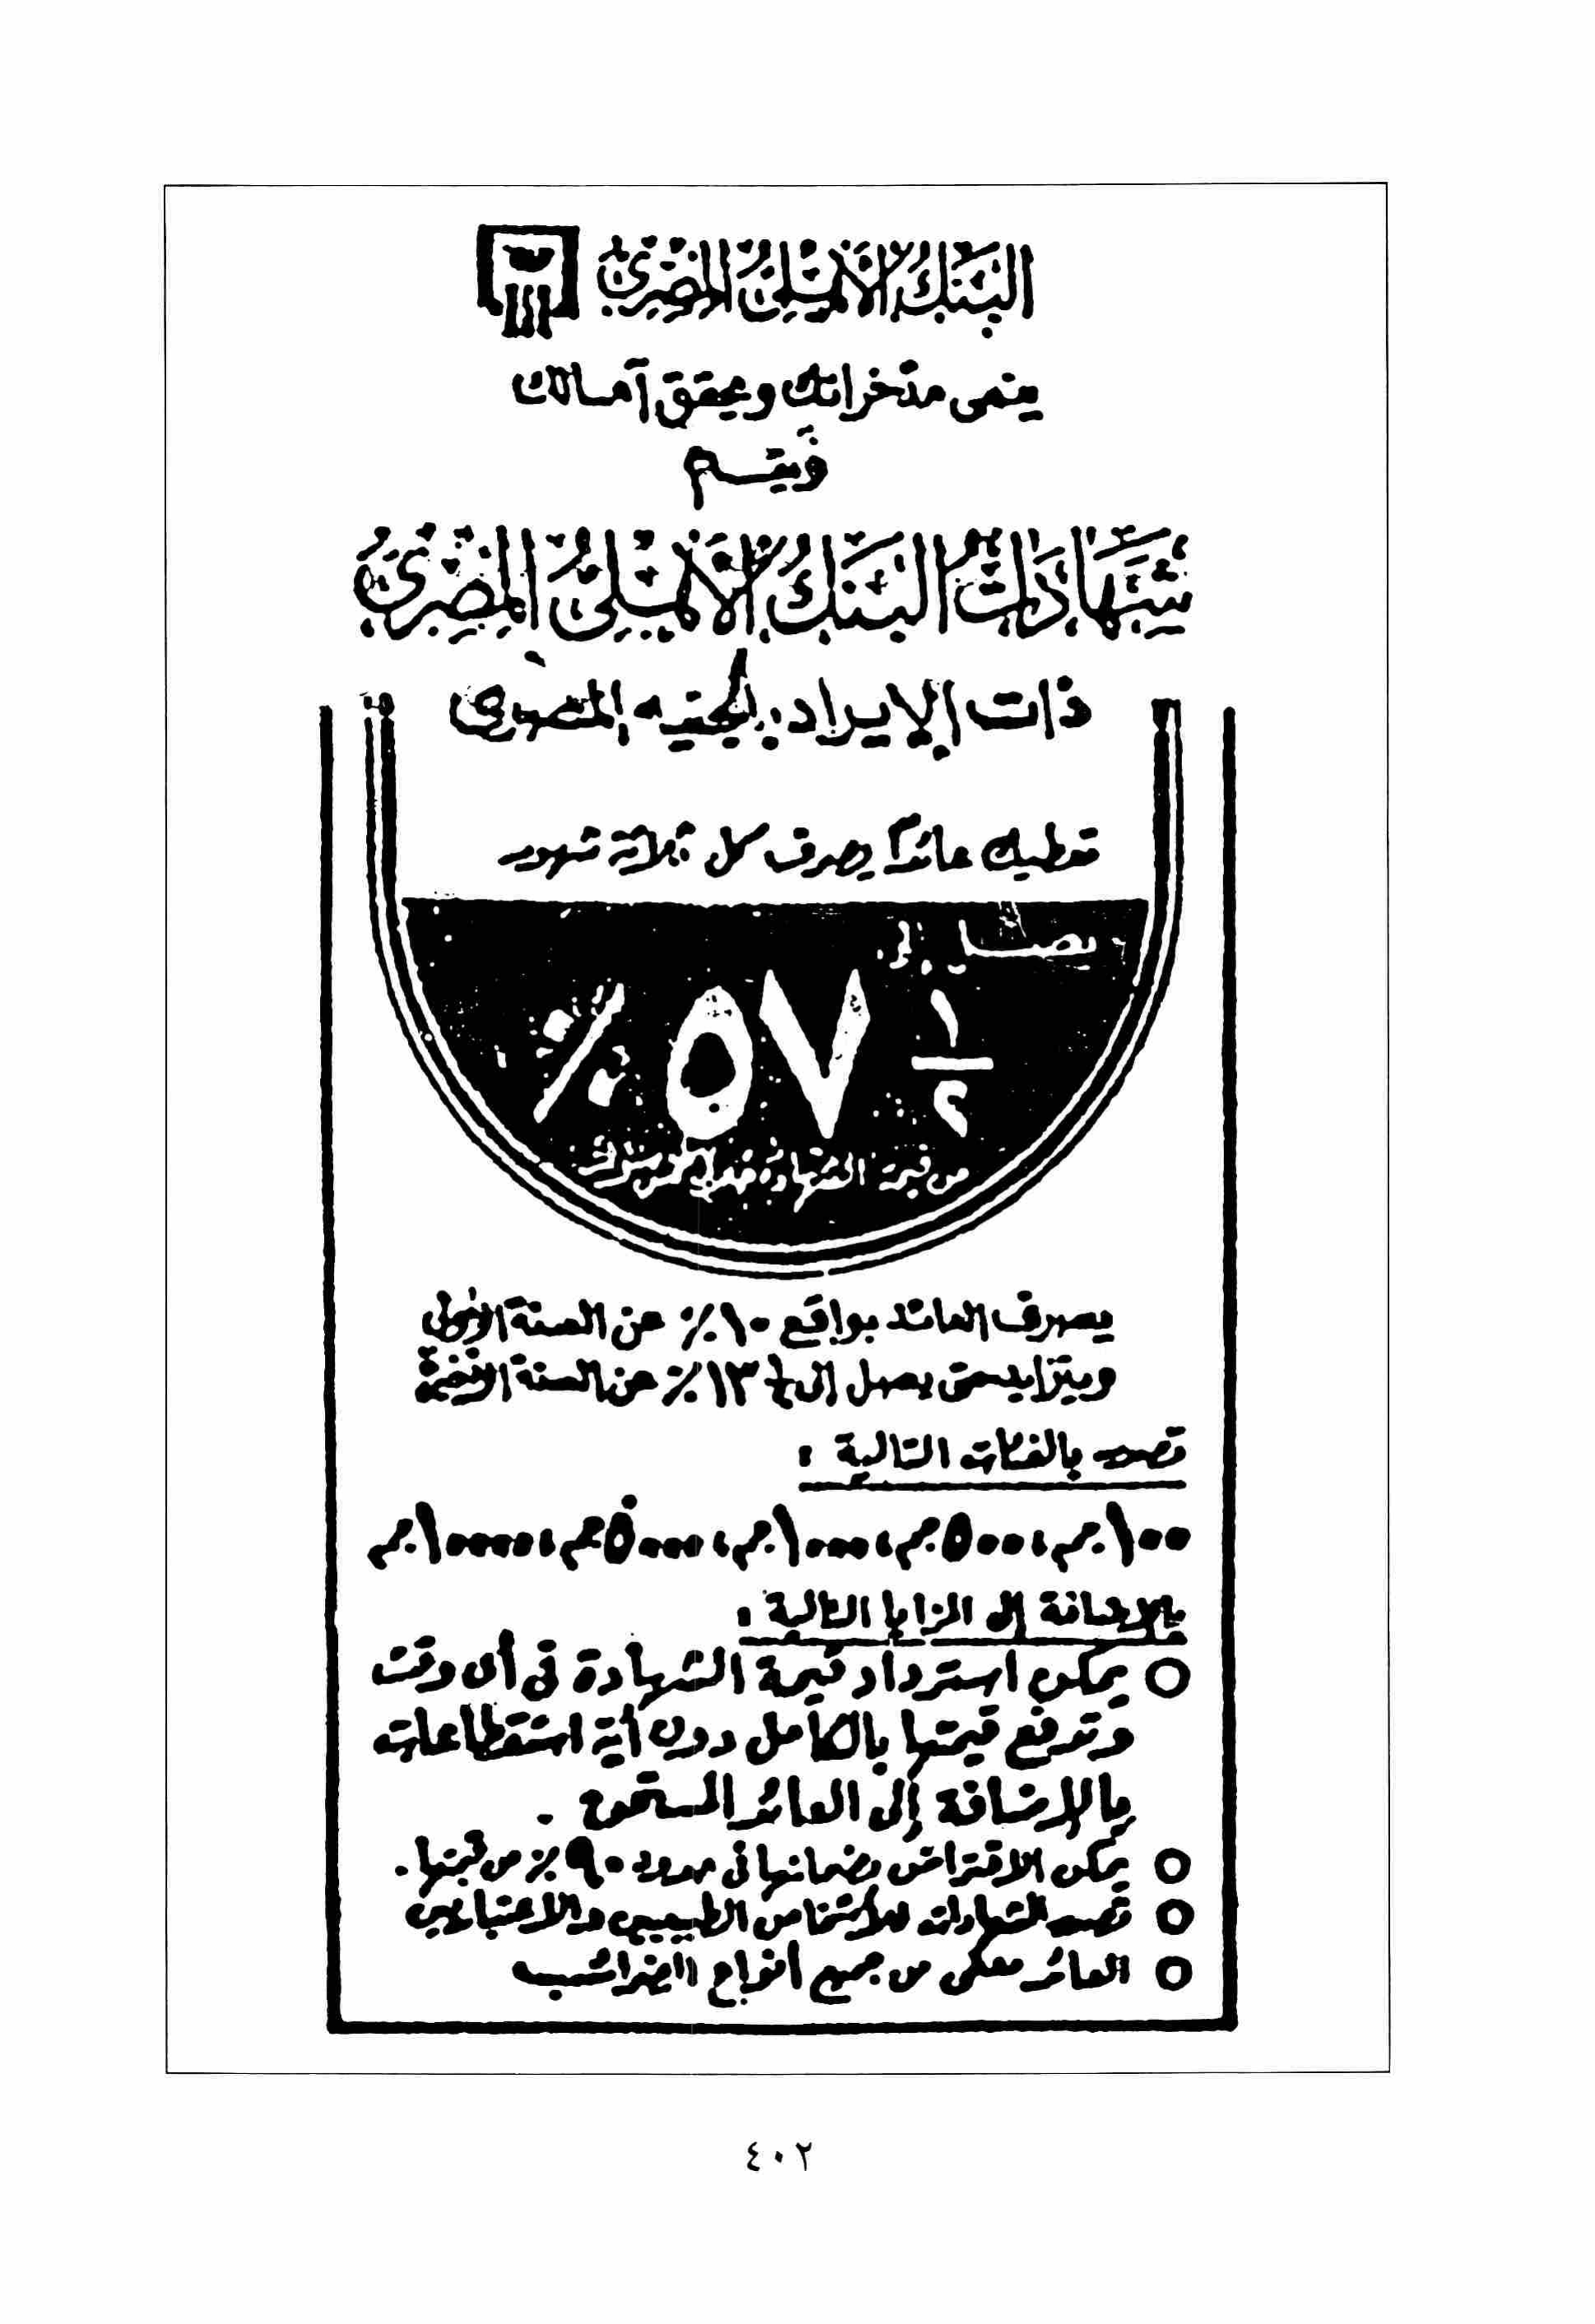 البنك الأهلي المصري
ينمى مدخراتك ويحقق آمالك
ويقدم
شهادات البنك الأهلي المصري
ذات الإيراد بالجنيه المصرى
تعطيك عائداً يصرف كل ثلاثة شهور
يصل إلى
٥٧ ١/٢ ٪
من قيمة الشهادة
يصرف العائد بواقع ١٠٪ عن السنة الأولى
ويتزايد حتى يصل إلى ١٣٪ عن السنة الأخيرة
تصدر بالفئات التالية :
١٠٠ ج.م، ٥٠٠ ج.م، ١٠٠٠ ج.م، ٥٠٠٠ ج.م، ١٠٠٠٠ ج.م
بالإضافة إلى المزايا التالية :
○ يمكن استرداد قيمة الشهادة فى أى وقت
وتدفع قيمتها بالكامل دون أية استقطاعات
بالإضافة إلى العائد المستحق .
○ يمكن الاقتراض بضمانها فى حدود ٩٠٪ من قيمتها .
○ تصدر الشهادات للأشخاص الطبيعيين والاعتباريين
○ العائد معفى من جميع أنواع الضرائب
٤٠٢